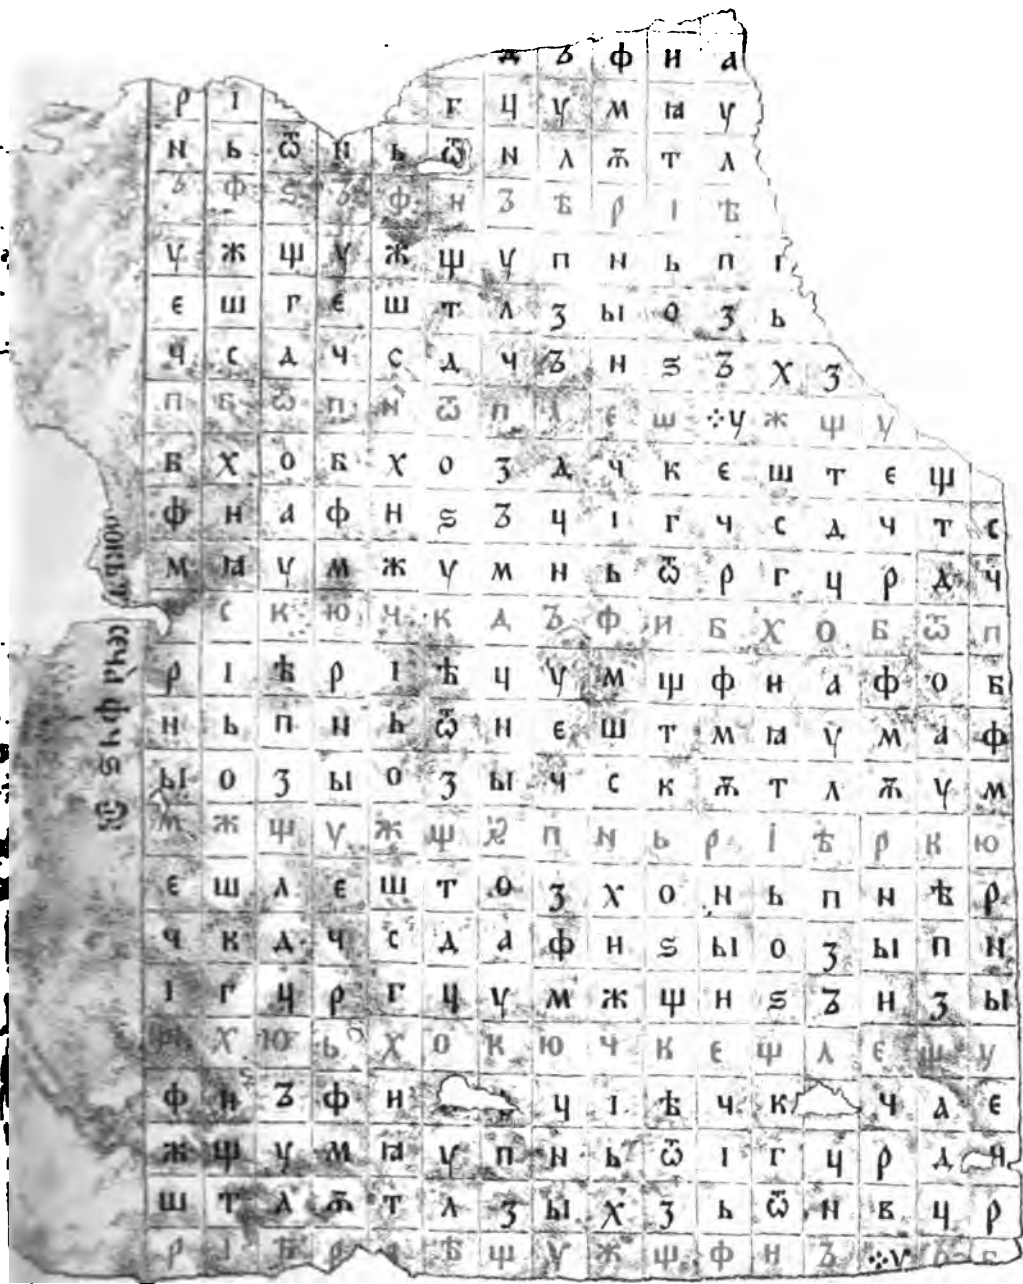 д ꙁ ф н а
р і г ч ѵ м ꙗ ѵ
н ь ѿ н ь ѿ н л ѫ т л
ꙁ ф ѕ ꙁ ф н ꙁ ѣ р і ѣ
ѵ ж щ ѵ ж щ ѵ п н ь п
є ш г є ш т л з ы о з ь
ч с д ч с д ч ꙁ н ѕ ꙁ х з
п б ѿ п н ѿ п л є ш у ж щ ѵ
б х о б х о з д ч к є ш т є щ
ф н а ф н ѕ ꙁ ч і г ч с д ч т с
м ꙗ ѵ м ж ѵ м н ь ѿ р г ч р д ч
с к ю ч к д ꙁ ф и б х о б ѿ п
р і ѣ р і ѣ ч ѵ м щ ф н а ф о б
н ь п н ь ѿ н є ш т м ꙗ ѵ м а ф
ы о з ы о з ы ч с к ѫ т л ѫ ѵ м
м ж щ ѵ ж щ п н ь р і ѣ р к ю
є ш л є ш т о з х о н ь п н ѣ р
ч к д ч с д а ф н ѕ ы о з ы п н
і г ч р г ч ѵ м ж щ н ѕ ꙁ н з ы
х ю ь х о к ю ч к є щ л є щ у
ф н ꙁ ф н ч і ѣ ч к ч д є
ж щ ѵ м ꙗ ѵ п н ь ѿ і г ч р д н
ш т л ѫ т л з ы х з ь ѿ н в ч р
р і ѣ р ѣ щ ѵ ж щ ф н ꙁ ѵ